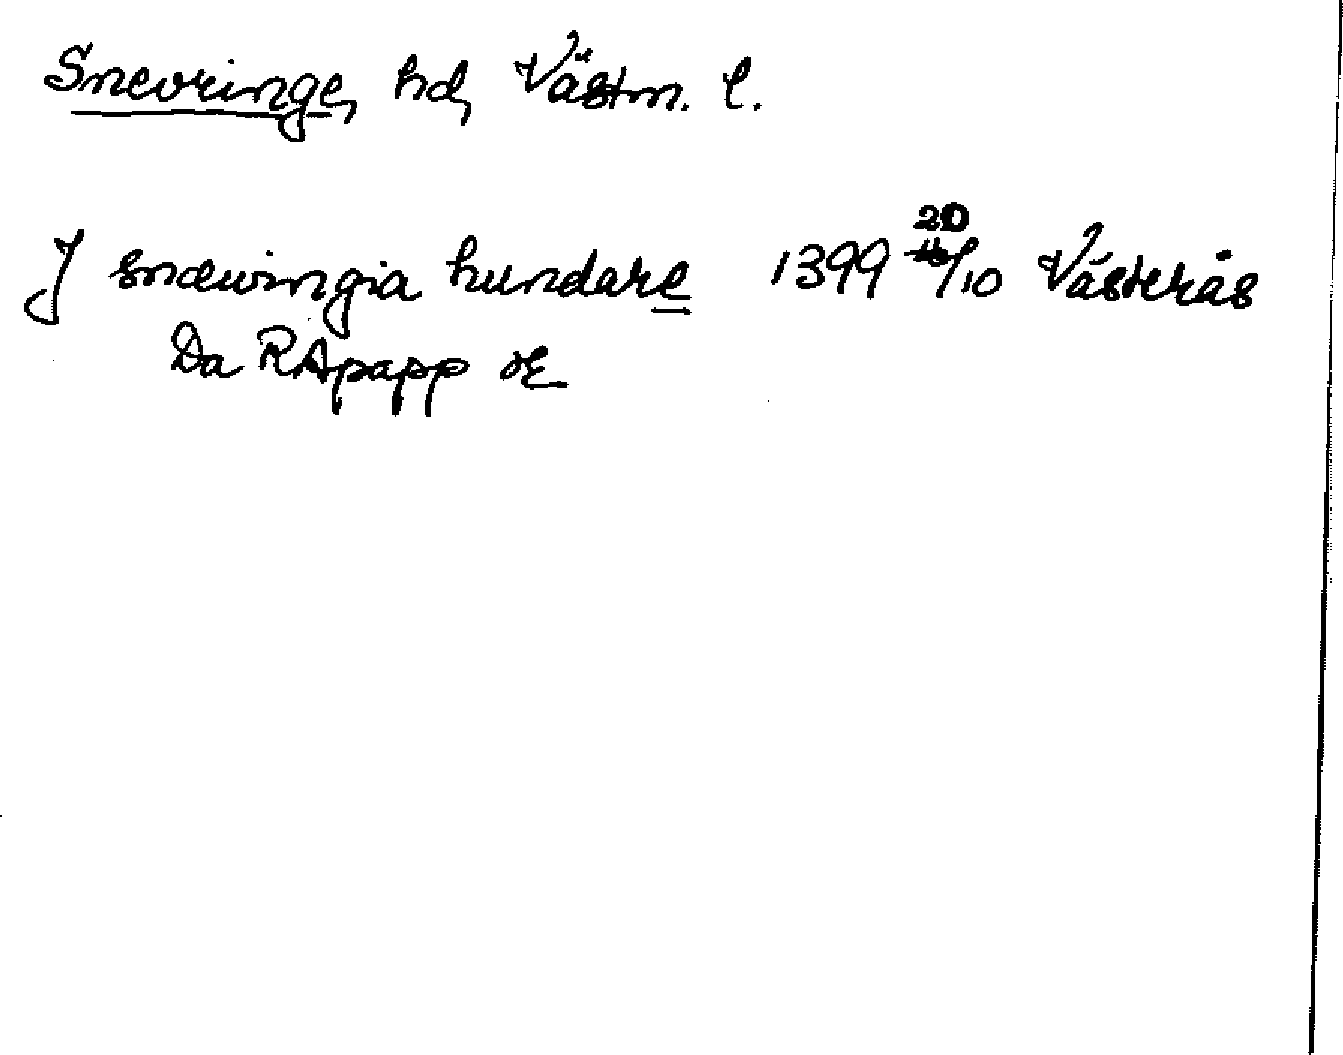 Snevringe, hd, Västm. l.
20
J snæwingia hundare 1399 /10 Västerås
Da RApapp